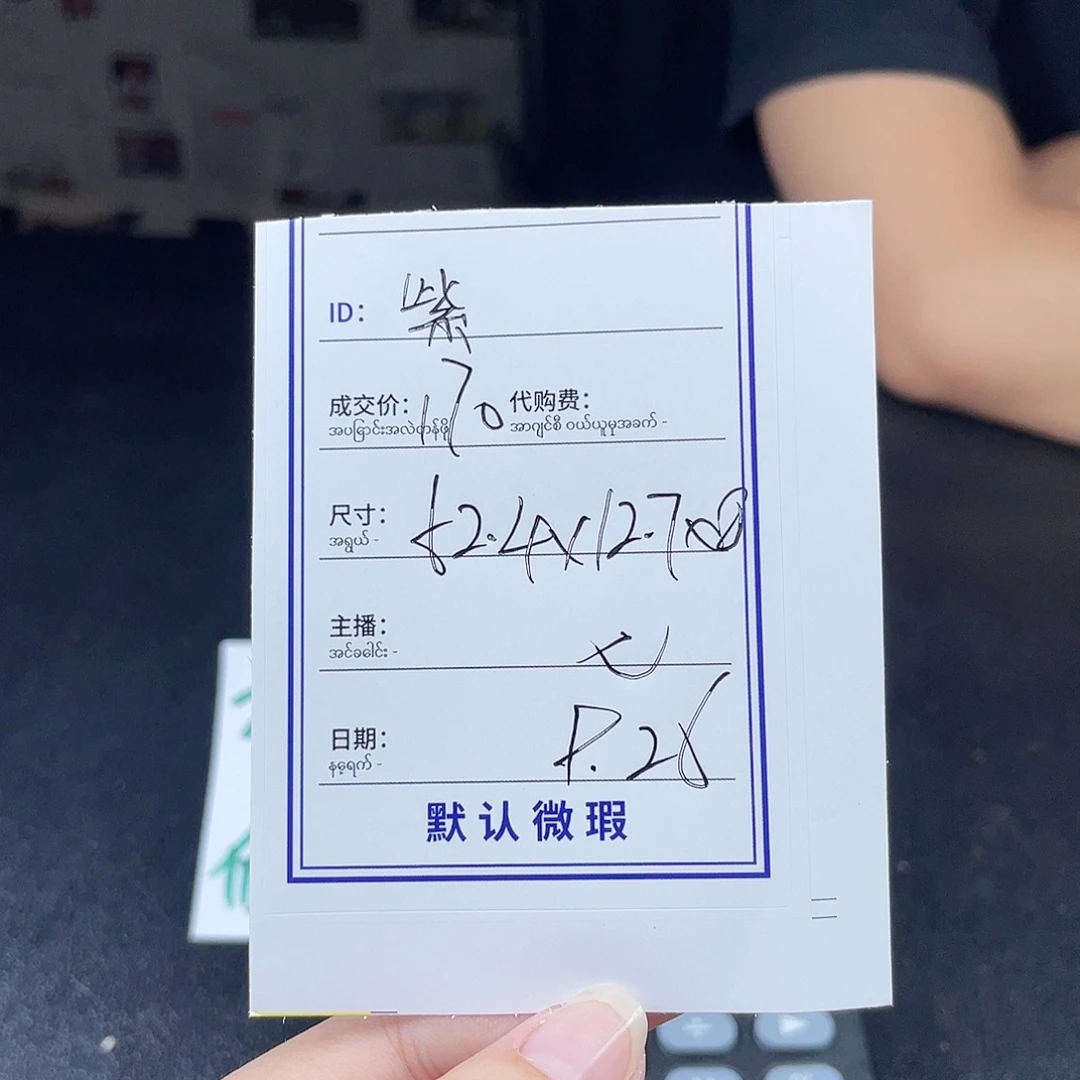 ID: 紫
成交价: 170 代购费:
အပြောင်းအလဲတန်ဖိုး အာဂျင်စီ ဝယ်ယူမှုအခက် -
尺寸: 62.4x12.7x8
အရွယ် -
主播: 七
အင်ခေါင်း -
日期:
နေ့ရက် -
默认微瑕